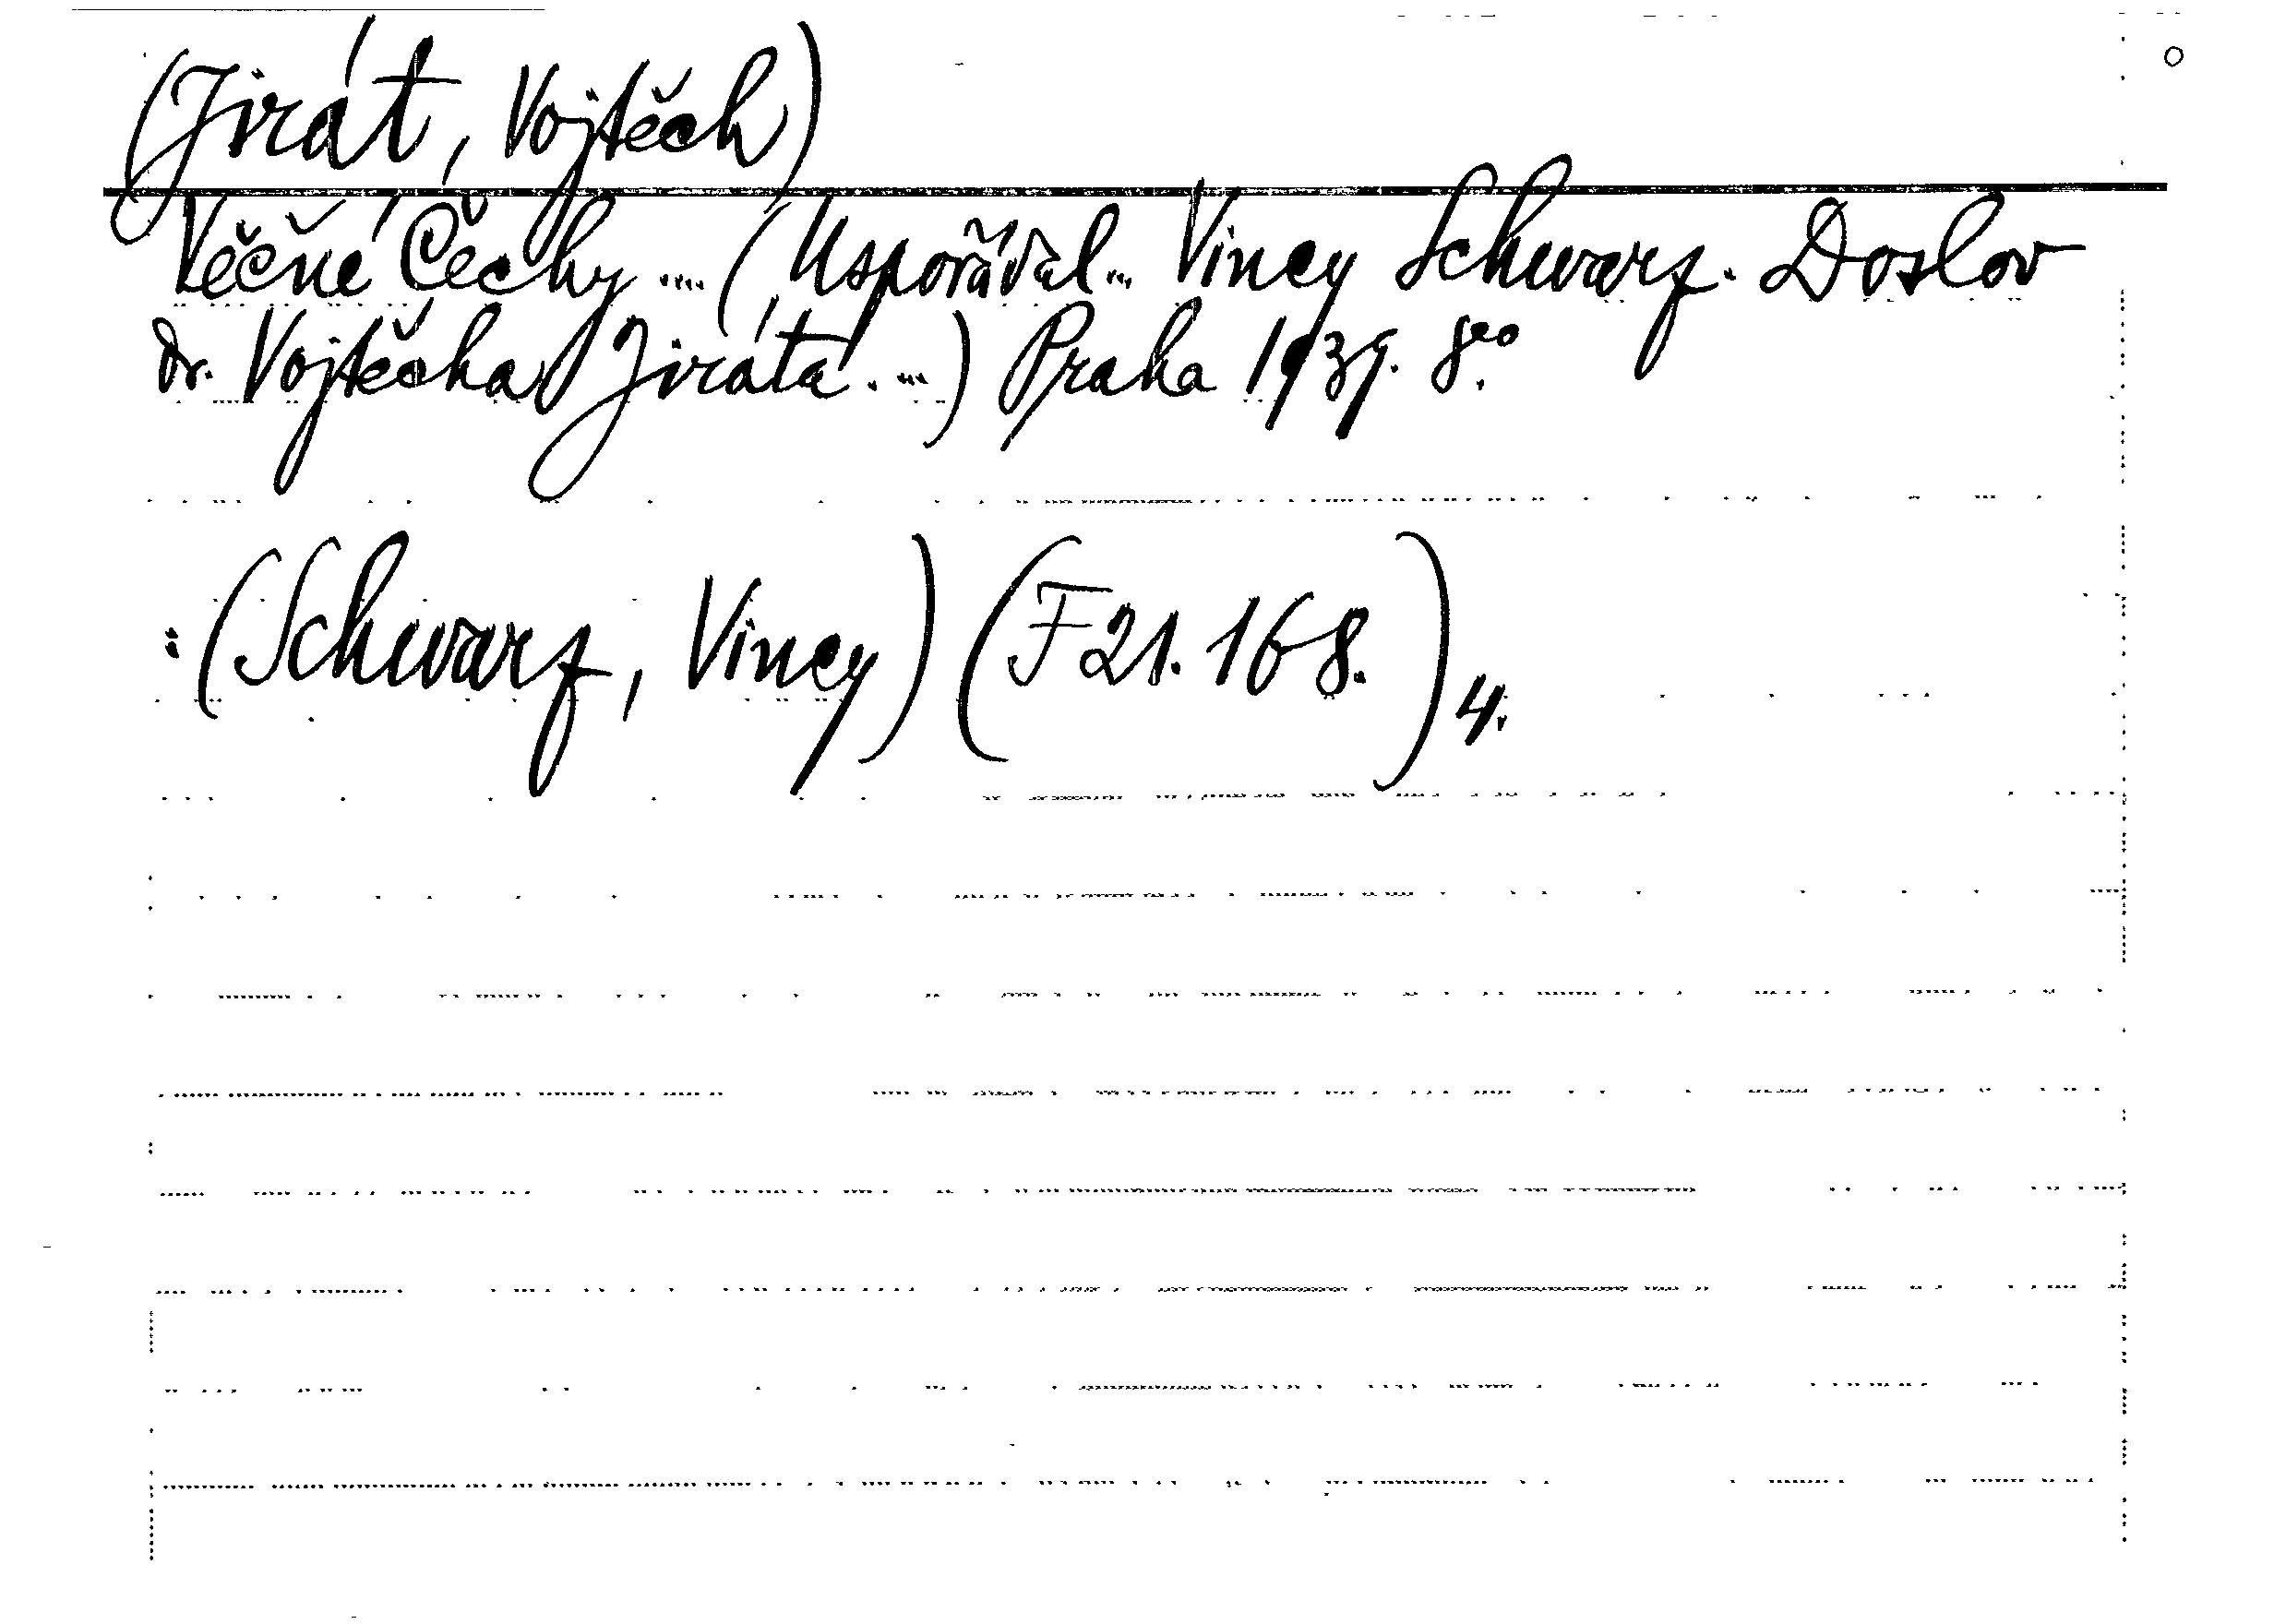 (Jirát, Vojtěch)
Věčné Čechy .... (Uspořádal... Vincy Schwarz. Doslov
dr. Vojtěcha Jiráta. ...) Praha 1939. 8°.
: (Schwarz, Vincy) (F 21.168.) 4.